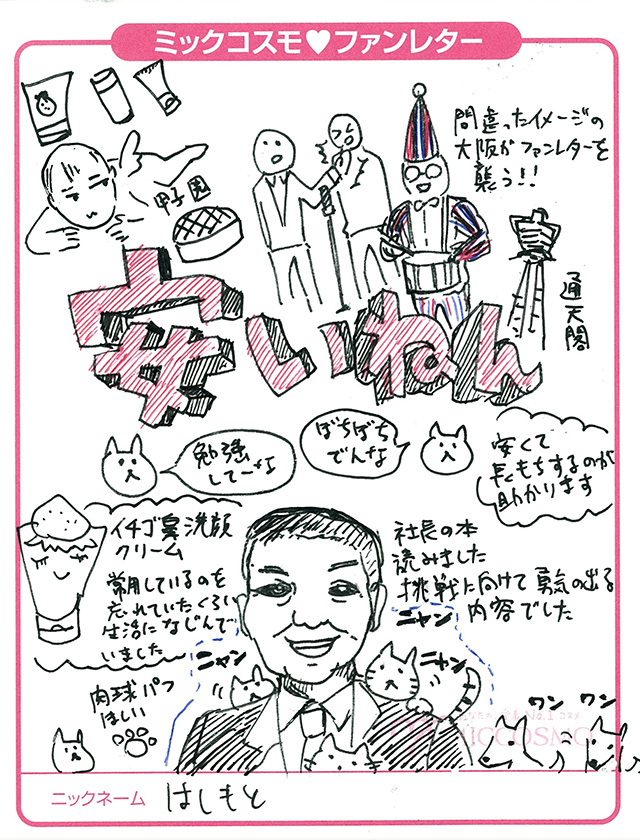 ミックコスモ♥ファンレター
間違ったイメージの
大阪がファンレターを
襲う!!
甲子園
通天閣
安いねん
勉強
してーな
ぼちぼち
でんな
安くて
長もちするのが
助かります
イチゴ鼻洗顔
クリーム
常用しているのを
忘れていたくらい
生活になじんで
いました
社長の本
読みました
挑戦に向けて勇気の出る
内容でした
ニャン
ニャン
ニャン
肉球パフ
ほしい
ワン ワン
No.1コスメ
MICCOSMO
ニックネーム はしもと